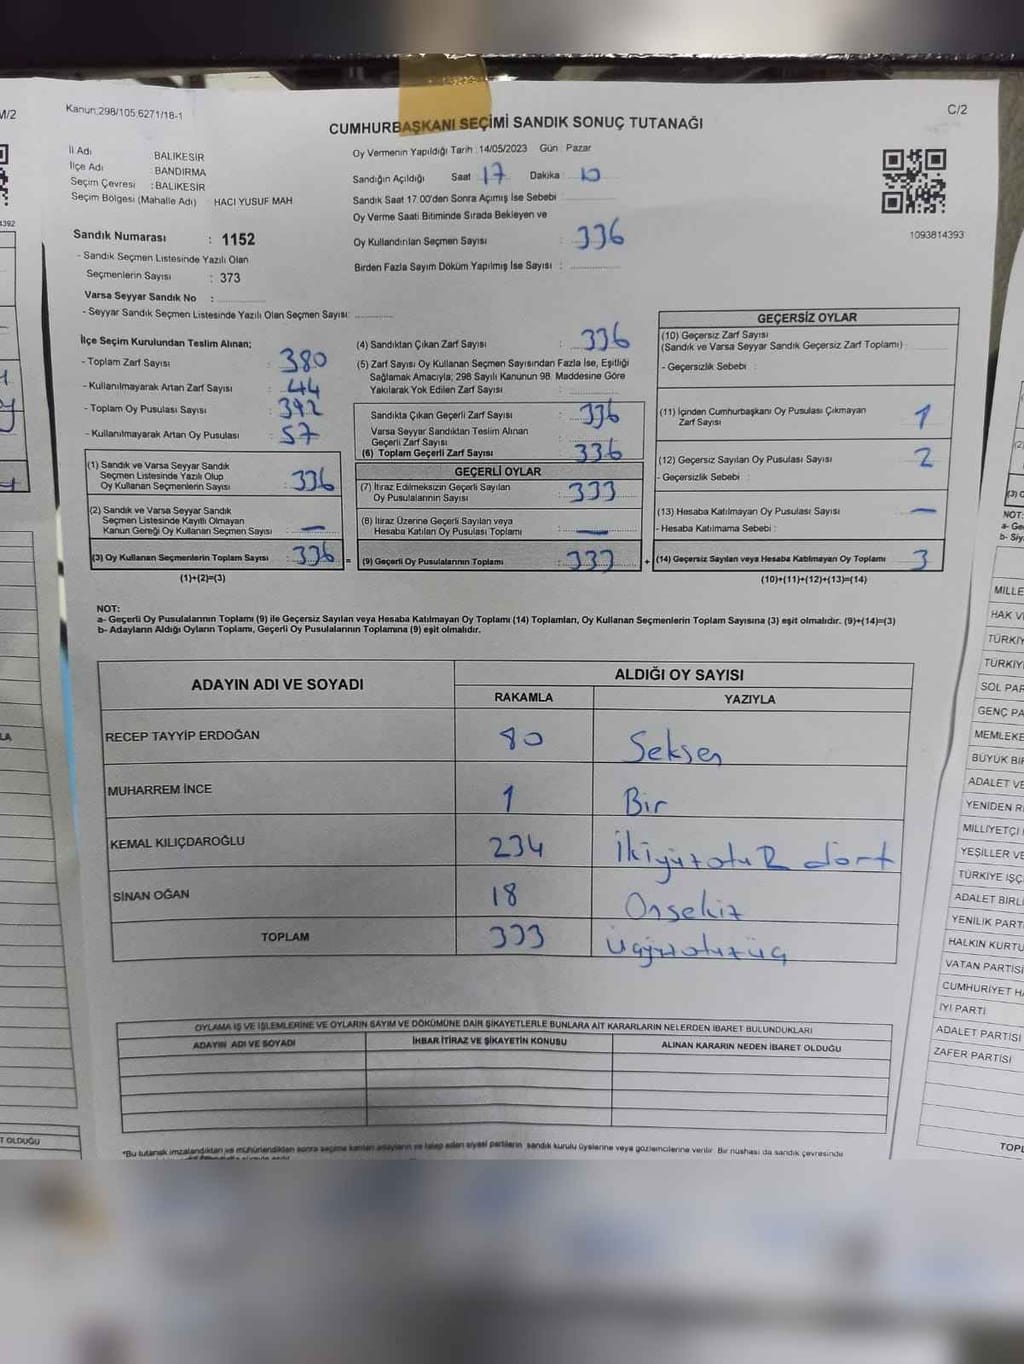 M/2
Kanun;298/105;6271/18-1
C/2
CUMHURBAŞKANI SEÇİMİ SANDIK SONUÇ TUTANAĞI
İl Adı BALIKESİR
İlçe Adı : BANDIRMA
Seçim Çevresi : BALIKESİR
Seçim Bölgesi (Mahalle Adı) HACI YUSUF MAH
Sandık Numarası : 1152
- Sandık Seçmen Listesinde Yazılı Olan
Seçmenlerin Sayısı : 373
Varsa Seyyar Sandık No :
- Seyyar Sandık Seçmen Listesinde Yazılı Olan Seçmen Sayısı:
Oy Vermenin Yapıldığı Tarih :14/05/2023 Gün : Pazar
Sandığın Açıldığı Saat 17 Dakika 10
Sandık Saat 17.00'den Sonra Açımış İse Sebebi
Oy Verme Saati Bitiminde Sırada Bekleyen ve
Oy Kullandırılan Seçmen Sayısı : 336
Birden Fazla Sayım Döküm Yapılmış İse Sayısı :
1093814393
4392
İlçe Seçim Kurulundan Teslim Alınan;
- Toplam Zarf Sayısı : 380
- Kullanılmayarak Artan Zarf Sayısı : 44
- Toplam Oy Pusulası Sayısı : 392
- Kullanılmayarak Artan Oy Pusulası : 57
(1) Sandık ve Varsa Seyyar Sandık
Seçmen Listesinde Yazılı Olup
Oy Kullanan Seçmenlerin Sayısı : 336
(2) Sandık ve Varsa Seyyar Sandık
Seçmen Listesinde Kayıtlı Olmayan
Kanun Gereği Oy Kullanan Seçmen Sayısı : —
(3) Oy Kullanan Seçmenlerin Toplam Sayısı : 336
(1)+(2)=(3)
(4) Sandıktan Çıkan Zarf Sayısı : 336
(5) Zarf Sayısı Oy Kullanan Seçmen Sayısından Fazla İse, Eşitliği
Sağlamak Amacıyla; 298 Sayılı Kanunun 98. Maddesine Göre
Yakılarak Yok Edilen Zarf Sayısı :
Sandıkta Çıkan Geçerli Zarf Sayısı : 336
Varsa Seyyar Sandıktan Teslim Alınan
Geçerli Zarf Sayısı :
(6) Toplam Geçerli Zarf Sayısı : 336
GEÇERLİ OYLAR
(7) İtiraz Edilmeksizin Geçerli Sayılan
Oy Pusulalarının Sayısı : 333
(8) İtiraz Üzerine Geçerli Sayılan veya
Hesaba Katılan Oy Pusulası Toplamı : —
= (9) Geçerli Oy Pusulalarının Toplamı : 333 +
GEÇERSİZ OYLAR
(10) Geçersiz Zarf Sayısı
(Sandık ve Varsa Seyyar Sandık Geçersiz Zarf Toplamı) :
- Geçersizlik Sebebi :
(11) İçinden Cumhurbaşkanı Oy Pusulası Çıkmayan
Zarf Sayısı 1
(12) Geçersiz Sayılan Oy Pusulası Sayısı 2
- Geçersizlik Sebebi :
(13) Hesaba Katılmayan Oy Pusulası Sayısı —
- Hesaba Katılmama Sebebi :
(14) Geçersiz Sayılan veya Hesaba Katılmayan Oy Toplamı 3
(10)+(11)+(12)+(13)=(14)
NOT:
a- Geçerli Oy Pusulalarının Toplamı (9) ile Geçersiz Sayılan veya Hesaba Katılmayan Oy Toplamı (14) Toplamları, Oy Kullanan Seçmenlerin Toplam Sayısına (3) eşit olmalıdır. (9)+(14)=(3)
b- Adayların Aldığı Oyların Toplamı, Geçerli Oy Pusulalarının Toplamına (9) eşit olmalıdır.
ADAYIN ADI VE SOYADI ALDIĞI OY SAYISI
RAKAMLA YAZIYLA
RECEP TAYYİP ERDOĞAN 80 Seksen
MUHARREM İNCE 1 Bir
KEMAL KILIÇDAROĞLU 234 İkiyüzotuz dört
SİNAN OĞAN 18 Onsekiz
TOPLAM 333 Üçyüzotuzüç
OYLAMA İŞ VE İŞLEMLERİNE VE OYLARIN SAYIM VE DÖKÜMÜNE DAİR ŞİKAYETLERLE BUNLARA AİT KARARLARIN NELERDEN İBARET BULUNDUKLARI
ADAYIN ADI VE SOYADI İHBAR İTİRAZ VE ŞİKAYETİN KONUSU ALINAN KARARIN NEDEN İBARET OLDUĞU
*Bu tutanak imzalandıktan ve mühürlendikten sonra seçime katılan adayların ve talep eden siyasi partilerin sandık kurulu üyelerine veya gözlemcilerine verilir. Bir nüshası da sandık çevresinde
T OLDUĞU
NOT:
a- Ge
b- Siy
MİLLE
HAK V
TÜRKİY
TÜRKİY
SOL PAR
GENÇ PA
MEMLEKE
BÜYÜK BİR
ADALET VE
YENİDEN R
MİLLİYETÇİ
YEŞİLLER VE
TÜRKİYE İŞÇ
ADALET BİRLİ
YENİLİK PARTİ
HALKIN KURTU
VATAN PARTİSİ
CUMHURİYET HA
İYİ PARTİ
ADALET PARTİSİ
ZAFER PARTİSİ
TOPL